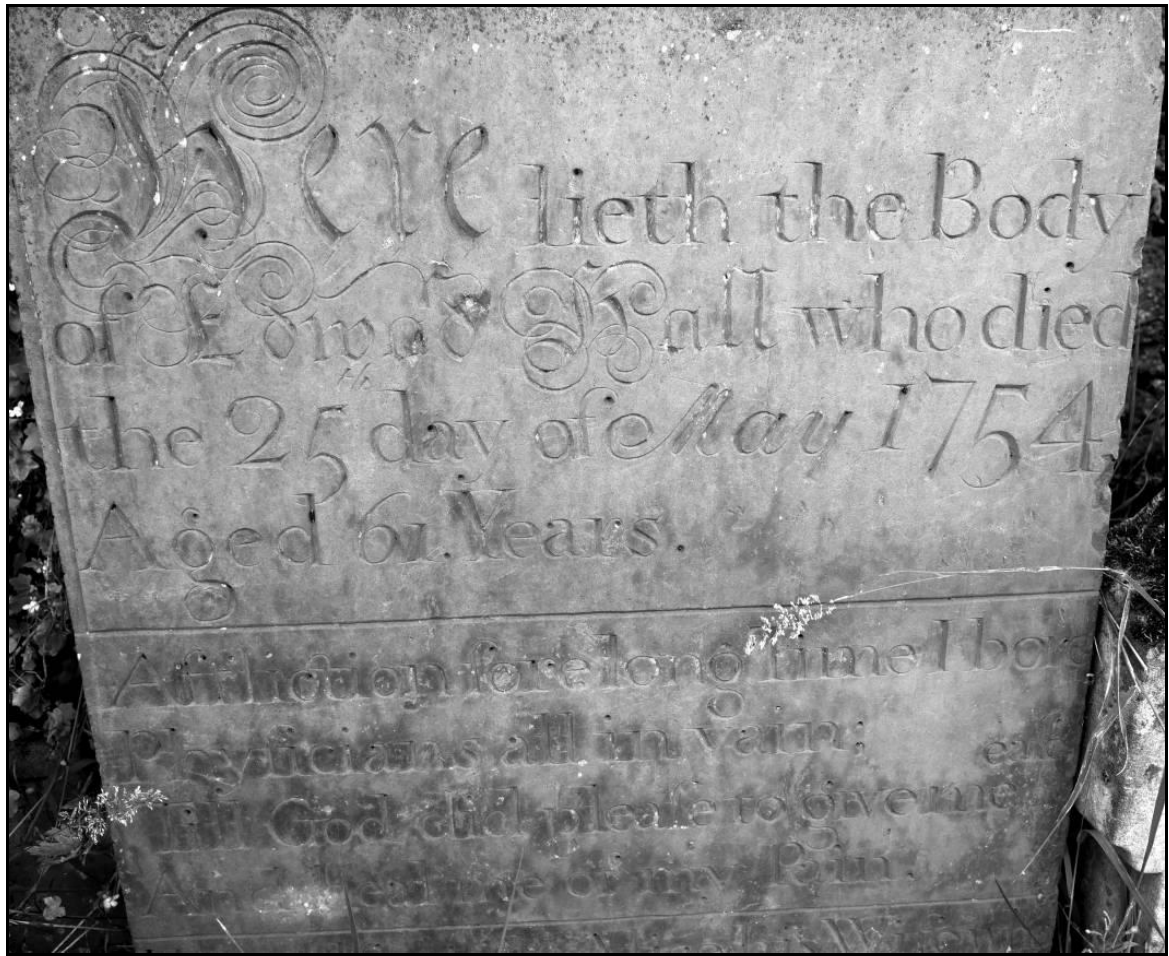 Here lieth the Body
of Edward Hall who died
the 25th day of May 1754.
Aged 61. Years.
Affliction ſore long time I bore
Phyſicians all in vain:
Till God did pleaſe to give me eaſe
And of my Pain.